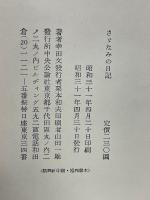 さゞなみの日記
定價二三〇圓
昭和三十一年四月二十日印刷
昭和三十一年四月三十日発行
著者幸田文発行者栗本和夫印刷者山田一雄
発行所中央公論社東京都千代田区丸ノ内二
ノ二丸ノ内ビルディング五九二区電話和田
倉(20)一一二一—五番振替口座東京三四番